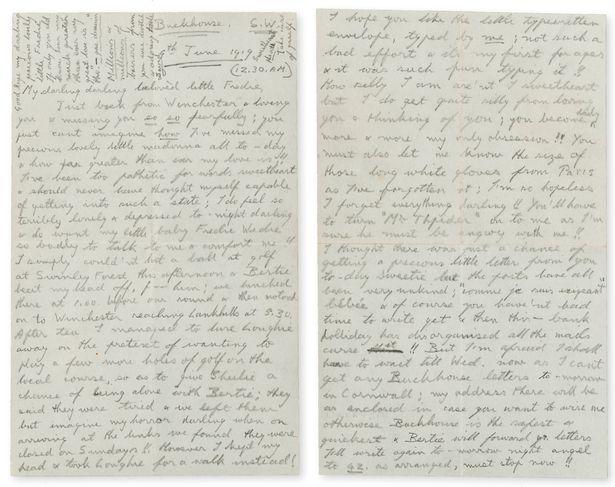 Buckhouse S.W.
9th June 1919
(12.30. A.M.)
My darling darling beloved little Fredie,
Just back from Winchester & loving
you & missing you so so fearfully; you
just can't imagine how I've missed my
precious lovely little madonna all to-day
& how far greater than ever my love is!!
I've been too pathetic for words sweetheart
& should never have thought myself capable
of getting into such a state; I do feel so
terribly lonely & depressed to-night darling
& do want my little baby Fredie Wedie
so badly to talk to me & comfort me!!
I simply could'nt hit a ball at golf
at Swinley Forest this afternoon & Bertie
beat my head off, f— him; we lunched
there at 1.00. before our round & then motored
on to Winchester reaching Lankhills at 5.30.
After tea I managed to lure Loughie
away on the pretext of wanting to
play a few more holes of golf on the
local course, so as to give Sheilie a
chance of being alone with Bertie; they
said they were tired & we left them
but imagine my horror darling when on
arriving at the links we found they were
closed on Sundays!! However I kept my
head & took Loughie for a walk instead!
I hope you like the little typewritten
envelope, typed by me; not such a
bad effort & its my first for ages
& it was such fun typing it!!
How silly I am are'nt I sweetheart
but I do get quite silly from loving
you & thinking of you; you become daily
more & more my only obsession!! You
must also let me know the size of
those long white gloves from Paris
as I've forgotten it; I'm so hopeless
I forget everything darling!! You'll have
to turn "Mr Thpider" on to me as I'm
sure he must be angwy with me!!
I thought there was just a chance of
getting a precious little letter from you
to-day sweetie but the posts have all
been very unkind,
& of course you have'nt had
time to write yet & then this bank
holliday has disorganised all the mails
curse it!! But I'm afraid I shall
have to wait till Wed. now as I can't
get any Buckhouse letters to-morrow
in Cornwall; my address there will be
as enclosed in case you want to wire me
otherwise Buckhouse is the safest &
quickest & Bertie will forward yr letters
I'll write again to-morrow night angel
to 42. as arranged, must stop now!!
Goodbye my darling
precious lovely
little Fredie